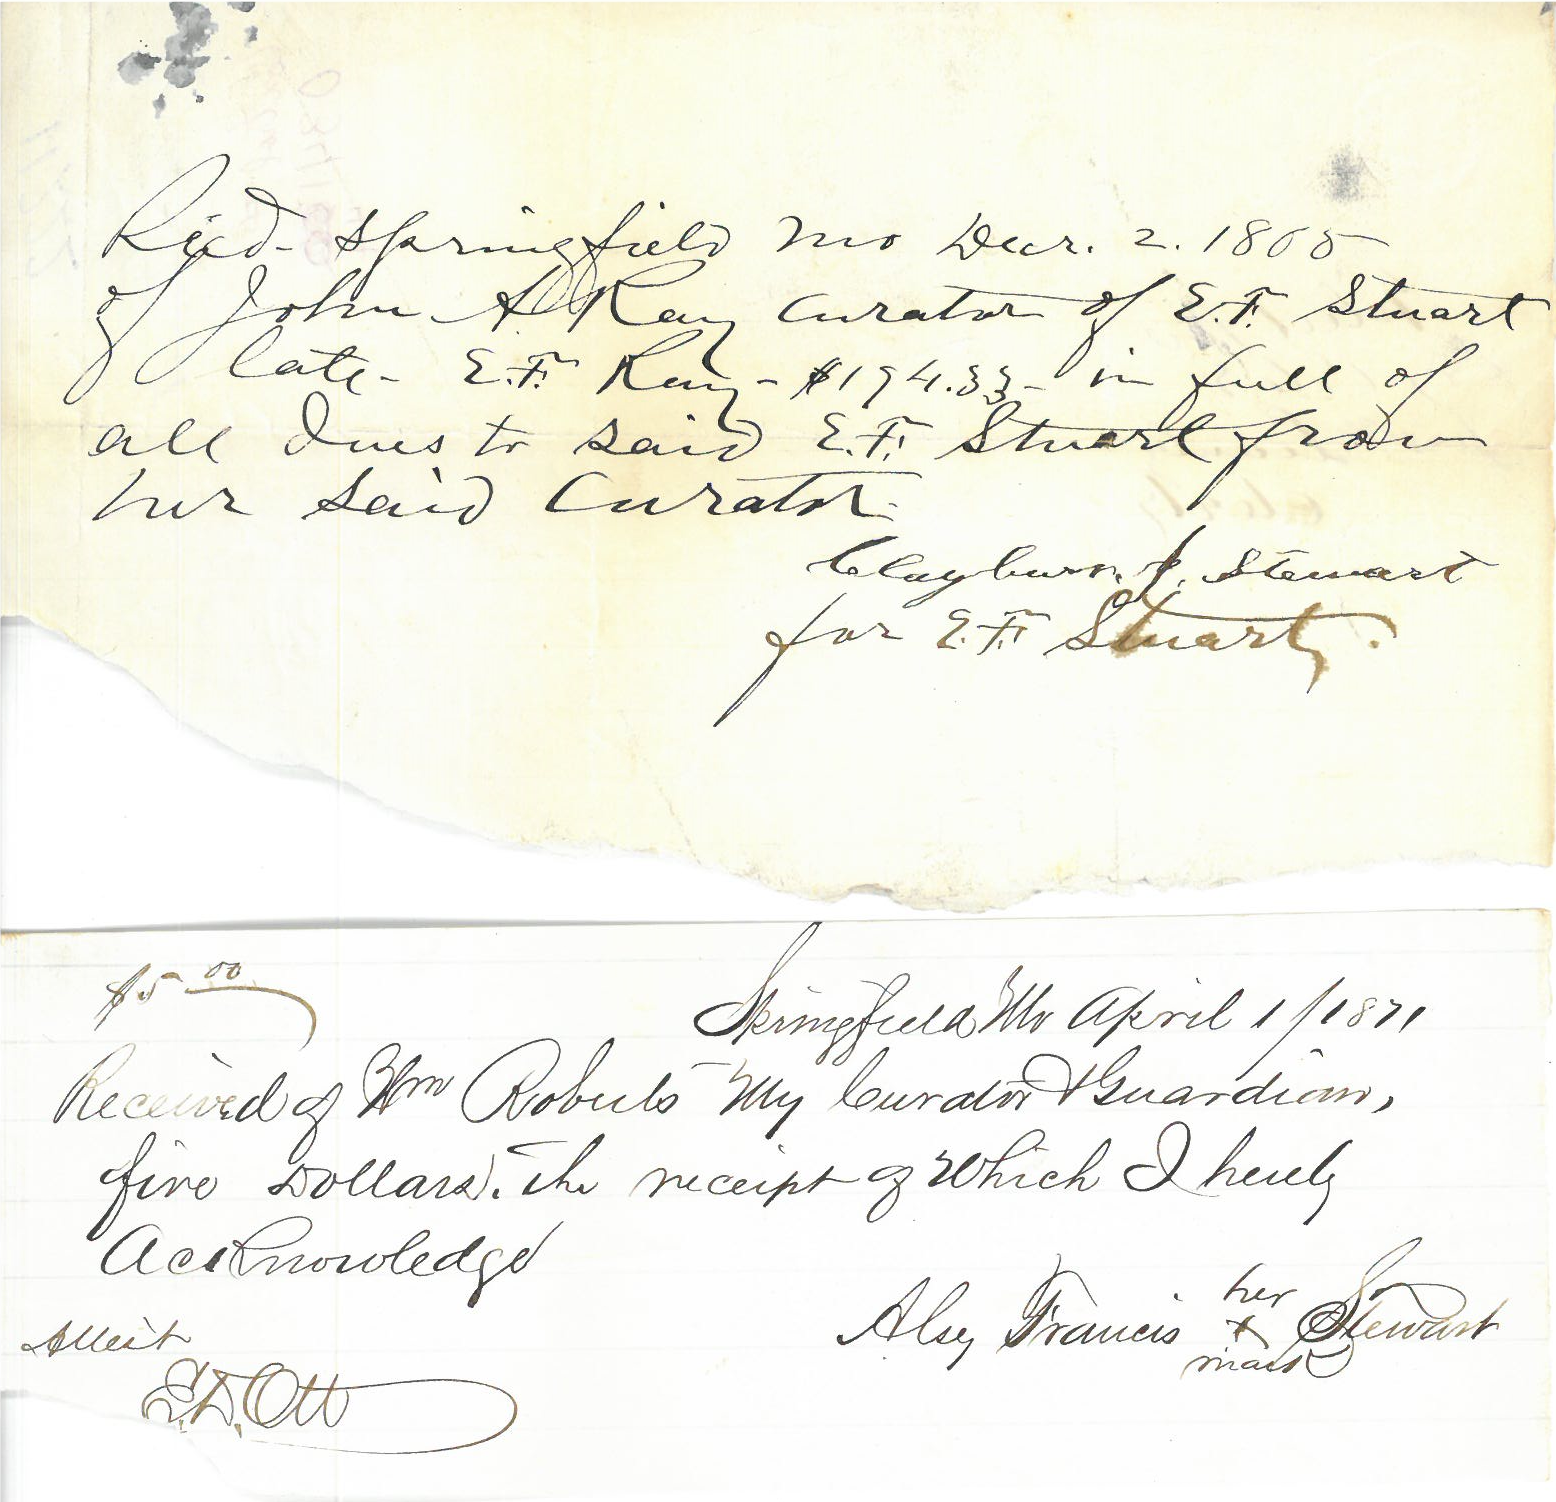 Recd- Springfield Mo Decr. 2. 1865
of John A Ray Curator of E.F. Stuart
late- E.F. Ray- $194.33- in full of
all dues to said E.F. Stuart from
her said Curator.
Clayburn. J. Stewart
for E.F. Stuart.
$5 00
Springfield Mo April 1/1871
Received of Wm Roberts My Curator & Guardian,
five Dollars. The receipt of Which I herely
Acknowledge
her
Alsey Francis x Stewart
mark
Attest
E.D. Ott